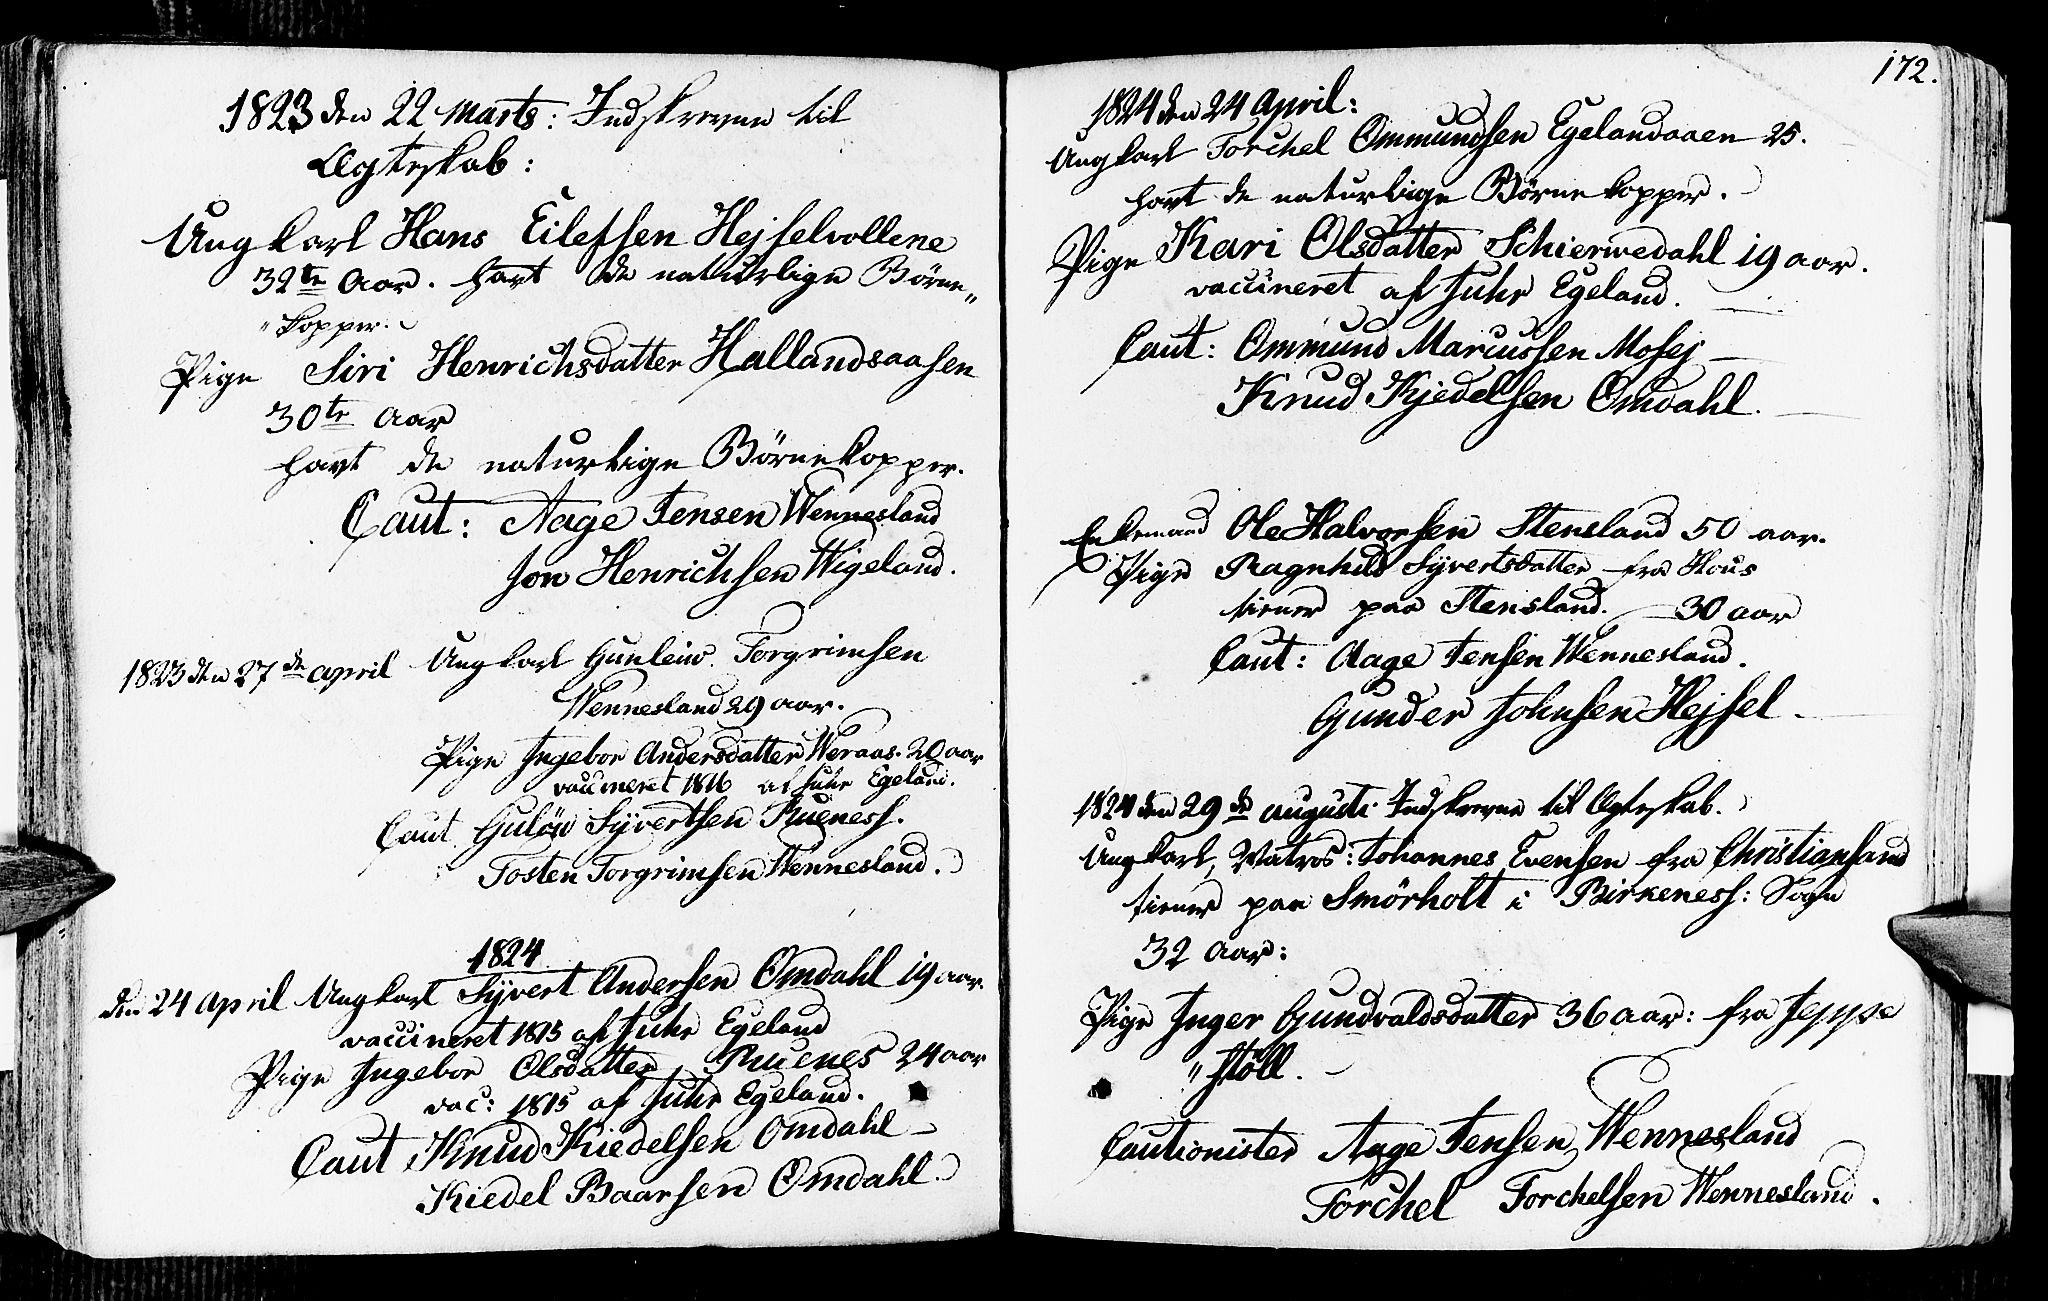 1823 den 22 Marts: Indskrevne til
Ægteskab:
Ungkarl Hans Eilefsen Hejselvollene
32te Aar. havt de naturlige Børne„
„kopper.
Pige Siri Henrichsdatter Hallandsaasen
30te Aar
havt de naturlige Børnekopper.
Caut: Aage Jensen Wennesland
Jon Henrichsen Wigeland.
1823 den 27de April Ungkarl Gunleiv Torgrimsen
Wennesland 29 aar.
Pige Ingebor Andersdatter Weraas. 20 aar
vaccineret 1816 af Juhr Egeland.
Caut Guløv Syvertsen Rueness.
Tosten Torgrimsen Wennesland.
1824
den 24 April Ungkarl Syvert Andersen Omdahl 19 aar.
vaccineret 1815 af Juhr Egeland
Pige Ingebor Olsdatter Ruenes 24 aar
vac: 1815 af Juhr Egeland.
Caut Knud Kiedelsen Omdahl
Kiedel Baarsen Omdahl.
172.
1824 den 24 April:
Ungkarl Torchel Ommundsen Egelandaaen 25.
havt de naturlige Børnekopper.
Pige Kari Olsdatter Schierwedahl 19 aar.
vaccineret af Juhr Egeland.
Caut: Ommund Marcussen Mosej
Knud Kjedelsen Omdahl.
Enkemand Ole Halvorsen Stensland 50 aar.
Pige Ragnhild Syvertsdatter fra Hous
tiener paa Stensland. 30 aar
Caut: Aage Jensen Wennesland.
Gunder Johnsen Hejsel.
1824 den 29de Augusti Indskrevne til Ægteskab.
Ungkarl, Matros: Johannes Evensen fra Christiansand
tiener paa Smørholt i Birkeness: Sogn
32 Aar:
Pige Inger Gundvaldsdatter 36 aar: fra Jeppe
„støll.
Cautionister Aage Jensen Wennesland
Torchel Torchelsen Wennesland.